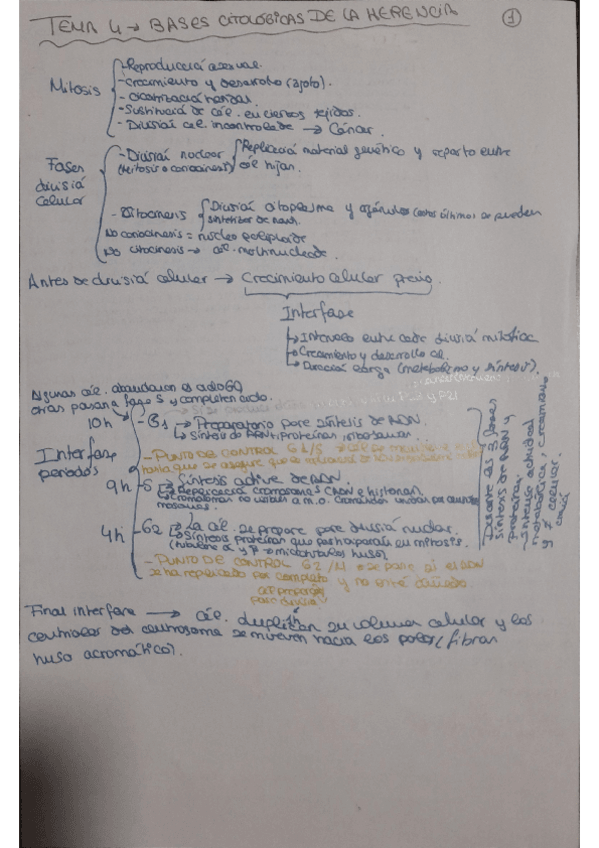 TEMA 4 → BASES CITOLÓGICAS DE LA HERENCIA
1
Mitosis
- Reproducción asexual.
- Crecimiento y desarrollo (adulto).
- Cicatrización heridas.
- Sustitución de cél. en ciertos tejidos.
- División cel. incontrolada → Cáncer.
Fases división celular
- División nuclear (mitosis o cariocinesis)
Replicación material genético y reparto entre cél hijas.
- Citocinesis
División citoplasma y orgánulos (estos últimos se pueden
sintetizar de
No cariocinesis = núcleo poliploide
No citocinesis → cél. multinucleada.
Antes de división celular → Crecimiento celular previo.
Interfase
→ Intervalo entre cada división mitótica
→ Crecimiento y desarrollo cel.
→ Duración larga (metabolismo y síntesis).
Algunas cél. abandonan el ciclo G0
otras pasan a fase S y completan ciclo.
Interfase periodos
10h
- G1 → Preparatorio para síntesis de ADN
→ Síntesis de ARNt, proteínas, ribosomas.
- PUNTO DE CONTROL G1/S
hasta que se asegure que
9h - S → Síntesis activa de ADN.
→ Replicación cromosomas (ADN e histonas).
4h - G2 → La cél. se prepara para división nuclear.
→ Síntesis proteínas que participarán en mitosis.
(tubulina α y β → microtúbulos huso)
- PUNTO DE CONTROL G2/M → se para si el ADN
se ha replicado por completo y no está dañado.
cél preparada
para división
Durante las 3 fases
síntesis de ARN y
proteínas.
- Intensa actividad
metabólica, crecimiento
y ≠ celular.
Final interfase → cél. duplican su volumen celular y los
centriolos del centrosoma se mueven hacia los polos (fibras
huso acromático).